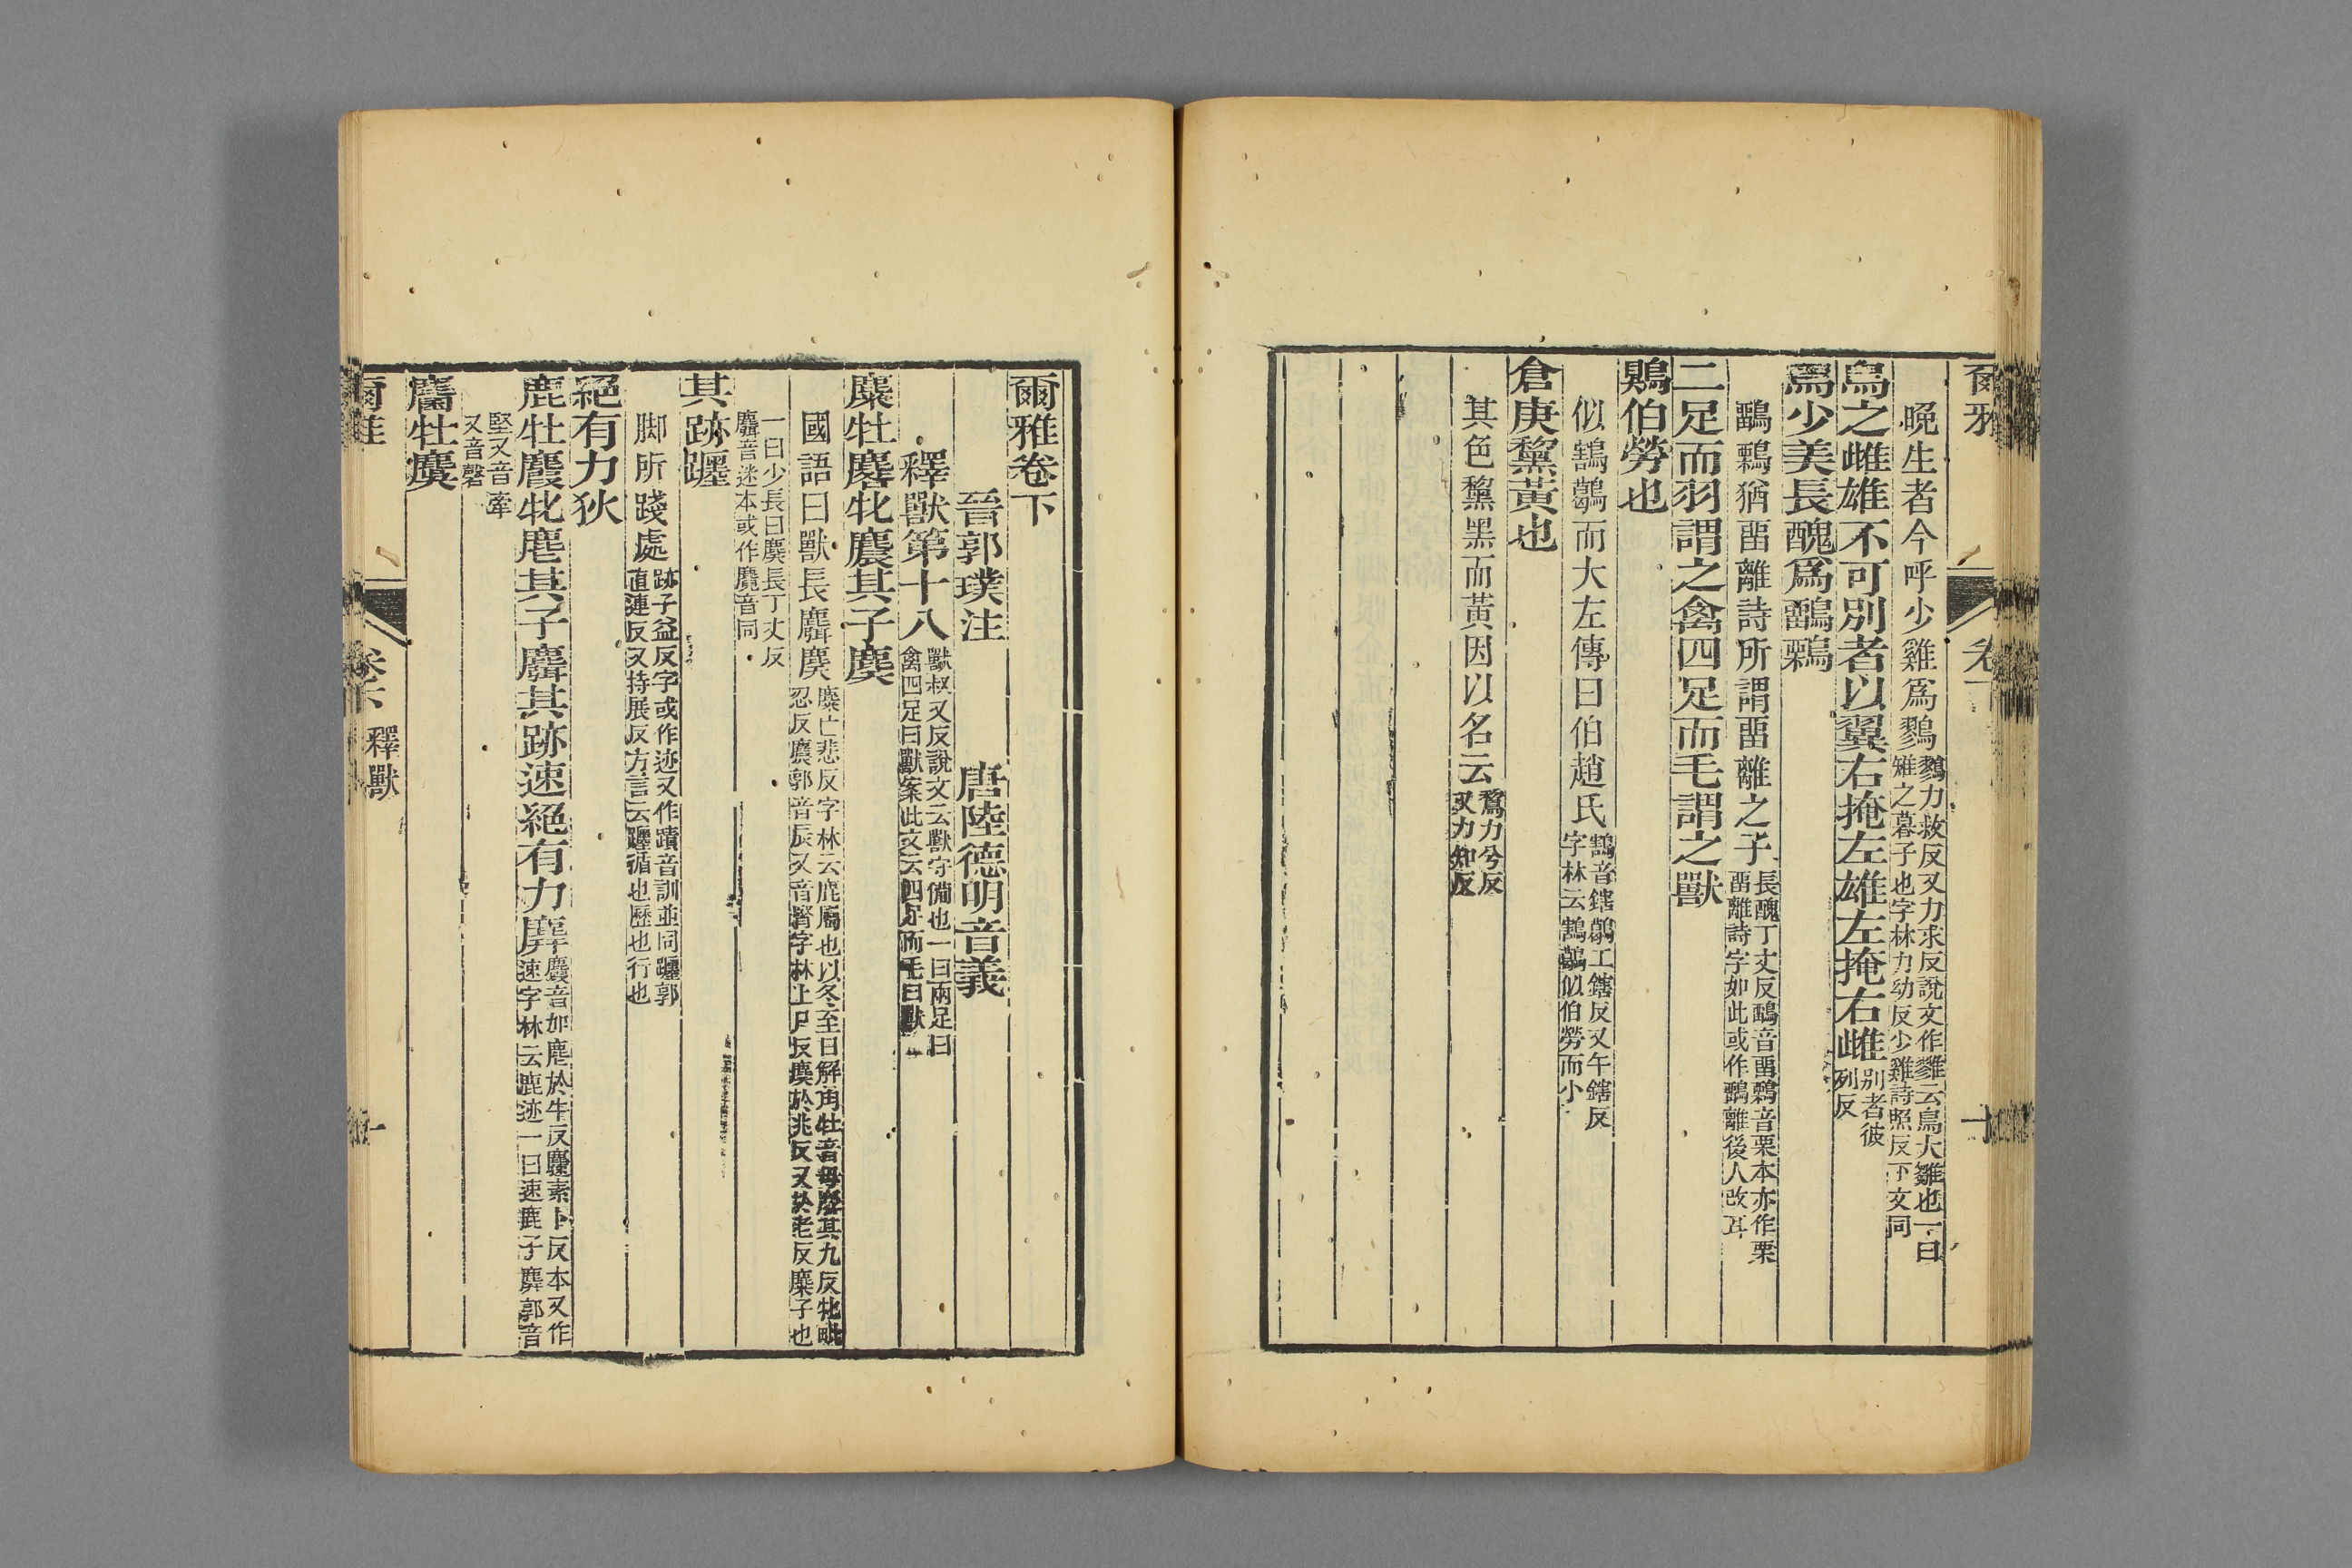 爾雅
卷下
十
晚生者今呼少雞爲鷚鷚力救反又力求反說文作雡云鳥大雛也一曰
雉之暮子也字林力幼反少雞詩照反下文同
鳥之雌雄不可別者以翼右掩左雄左掩右雌別者彼
列反
鳥少美長醜爲鶹鷅
鶹鷅猶留離詩所謂留離之子長醜丁丈反鶹音留鷅音栗本亦作栗
留離詩字如此或作鶹離後人改耳
二足而羽謂之禽四足而毛謂之獸
鵙伯勞也
似鶷鶡而大左傳曰伯趙氏鶷音鎋鶡工鎋反又午鎋反
字林云鶷鶡似伯勞而小
倉庚黧黃也
其色黧黑而黃因以名云鵹力兮反
又力知反
爾雅卷下
晉郭璞注 唐陸德明音義
釋獸第十八獸叔又反說文云獸守備也一曰兩足曰
禽四足曰獸案此文云四足而毛曰獸
麋牡麔牝麎其子䴠
國語曰獸長麛䴠麋亡悲反字林云鹿屬也以冬至日解角牡音母麔其九反牝毗
忍反麎郭音辰又音腎字林上尸反䴠於兆反又於老反麋子也
一曰少長曰䴠長丁丈反
麛音迷本或作麑音同
其跡躔
脚所踐處跡子益反字或作迹又作蹟音訓並同躔郭
直連反又持展反方言云躔循也歷也行也
絕有力狄
鹿牡麚牝麀其子麛其跡速絕有力䴪麚音加麀於牛反䴪素卜反本又作
速字林云鹿迹一曰速鹿子䴪郭音
堅又音牽
又音磬
麕牡麌
爾雅
卷下
釋獸